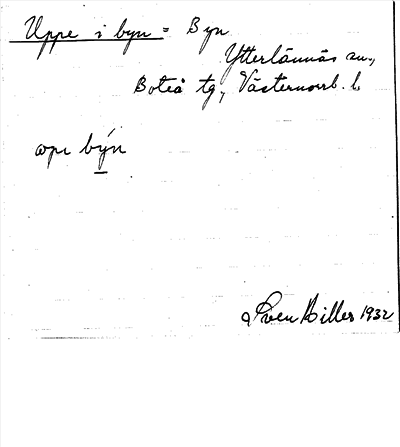 Uppe i byn = Byn
Ytterlännäs sn.,
Boteå tg, Västernorrl. l.
opı býn
Sven Hiller 1932